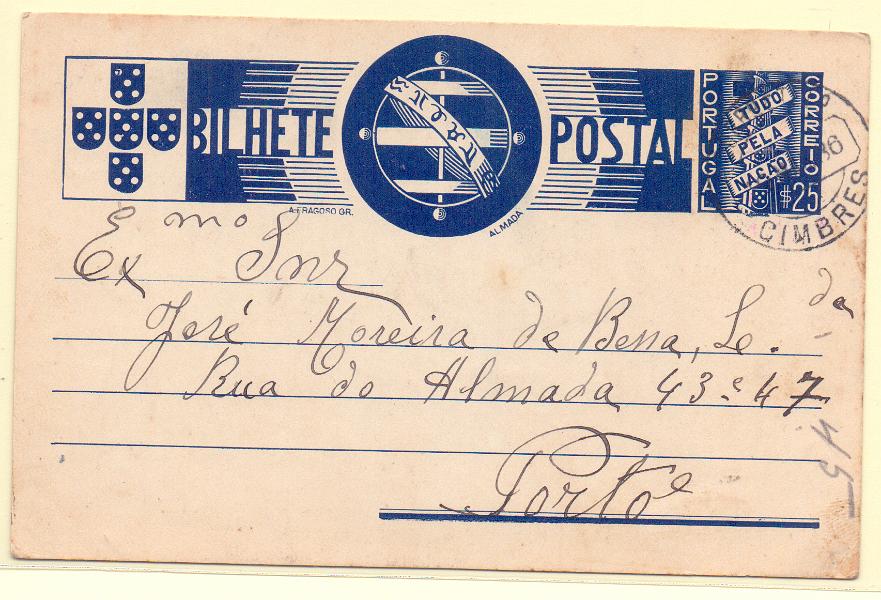 BILHETE POSTAL
VALEUS
PORTUGAL
CORREIO
TUDO
PELA
NAÇÃO
$25
36
CIMBRES
A. FRAGOSO GR.
ALMADA
Exmo Snr
José Moreira de Bessa, L.da
Rua do Almada 43 e 47
Porto